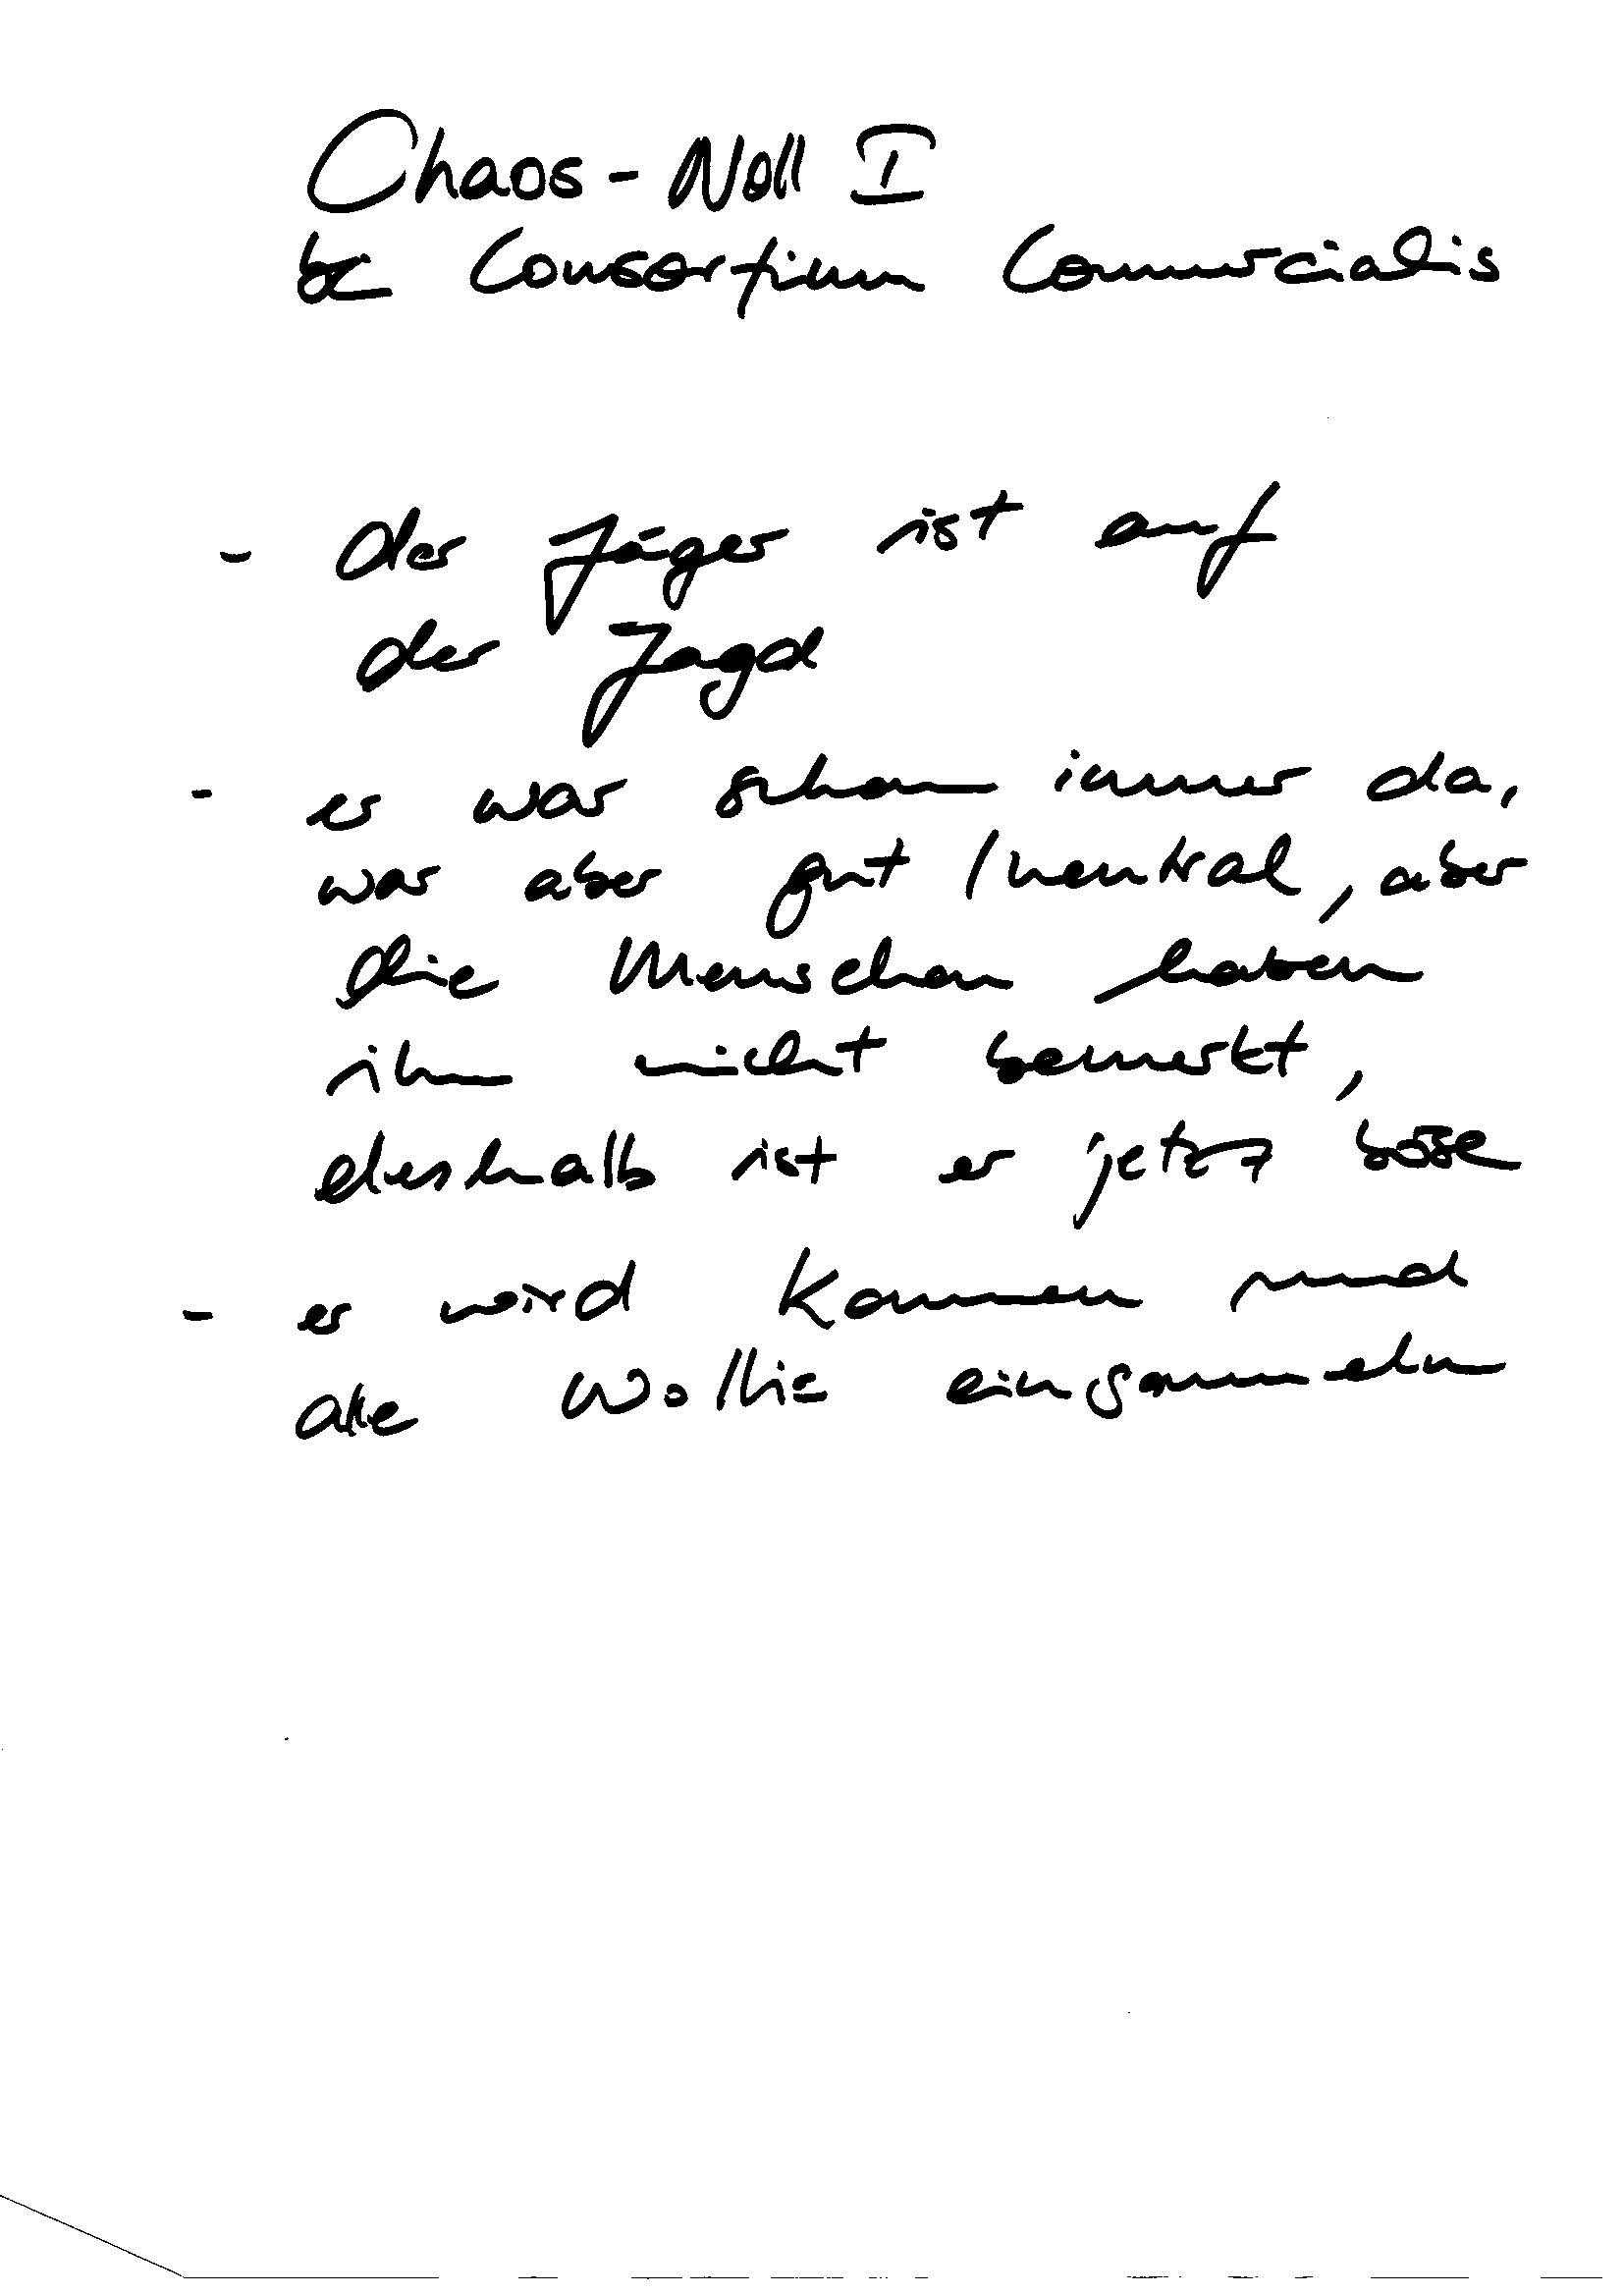 Chaos - Noll I
Consortium Commercialis
- der Jäger ist auf
der Jagd
- er war schon immer da,
war aber gut / neutral, aber
die Menschen haben
ihn nicht bemerkt,
deshalb ist er jetzt böse
- er wird kommen und
alle Wollie einsammeln